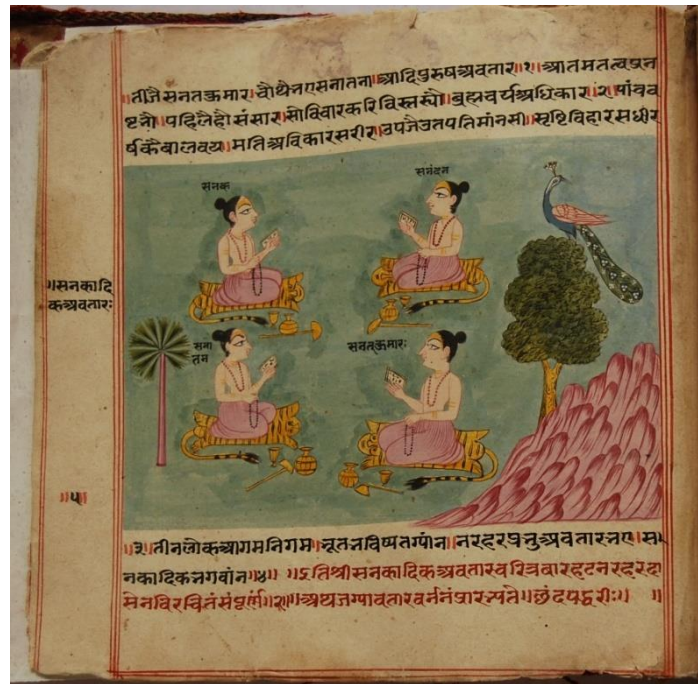 ॥तीजै सनतकुमार।चौथैनएसनातना।आदिपुरुषअवतार॥१॥आतमतत्वप्रन
ष्टनौ।पहिलैहौसंसार।सोविचारकरिविस्तस्यो।ब्रह्मचर्यअधिकार॥२॥पांचव
र्षकैबालवय।मतिअविकारसरीर।उपजैउतपतिमांनसी।सृष्टिविहारसधीर
सनक
सनंदन
॥सनकादि
कअवतारः
सना
तन
सनत्कुमारः
॥५॥
॥३॥तीनलोकआगमनिगम।नूतनविष्यतग्यांन।नरहरप्रनुअवतारनए।स
नकादिकनगवांन॥४॥ ॥इतिश्रीसनकादिकअवतारचरित्रबारहटनरहरदा
सेनविरचितंसंपूर्णं॥२॥अथजग्यावतारवर्ननंप्रारभ्यते॥छंदपद्धरीः॥ ॥